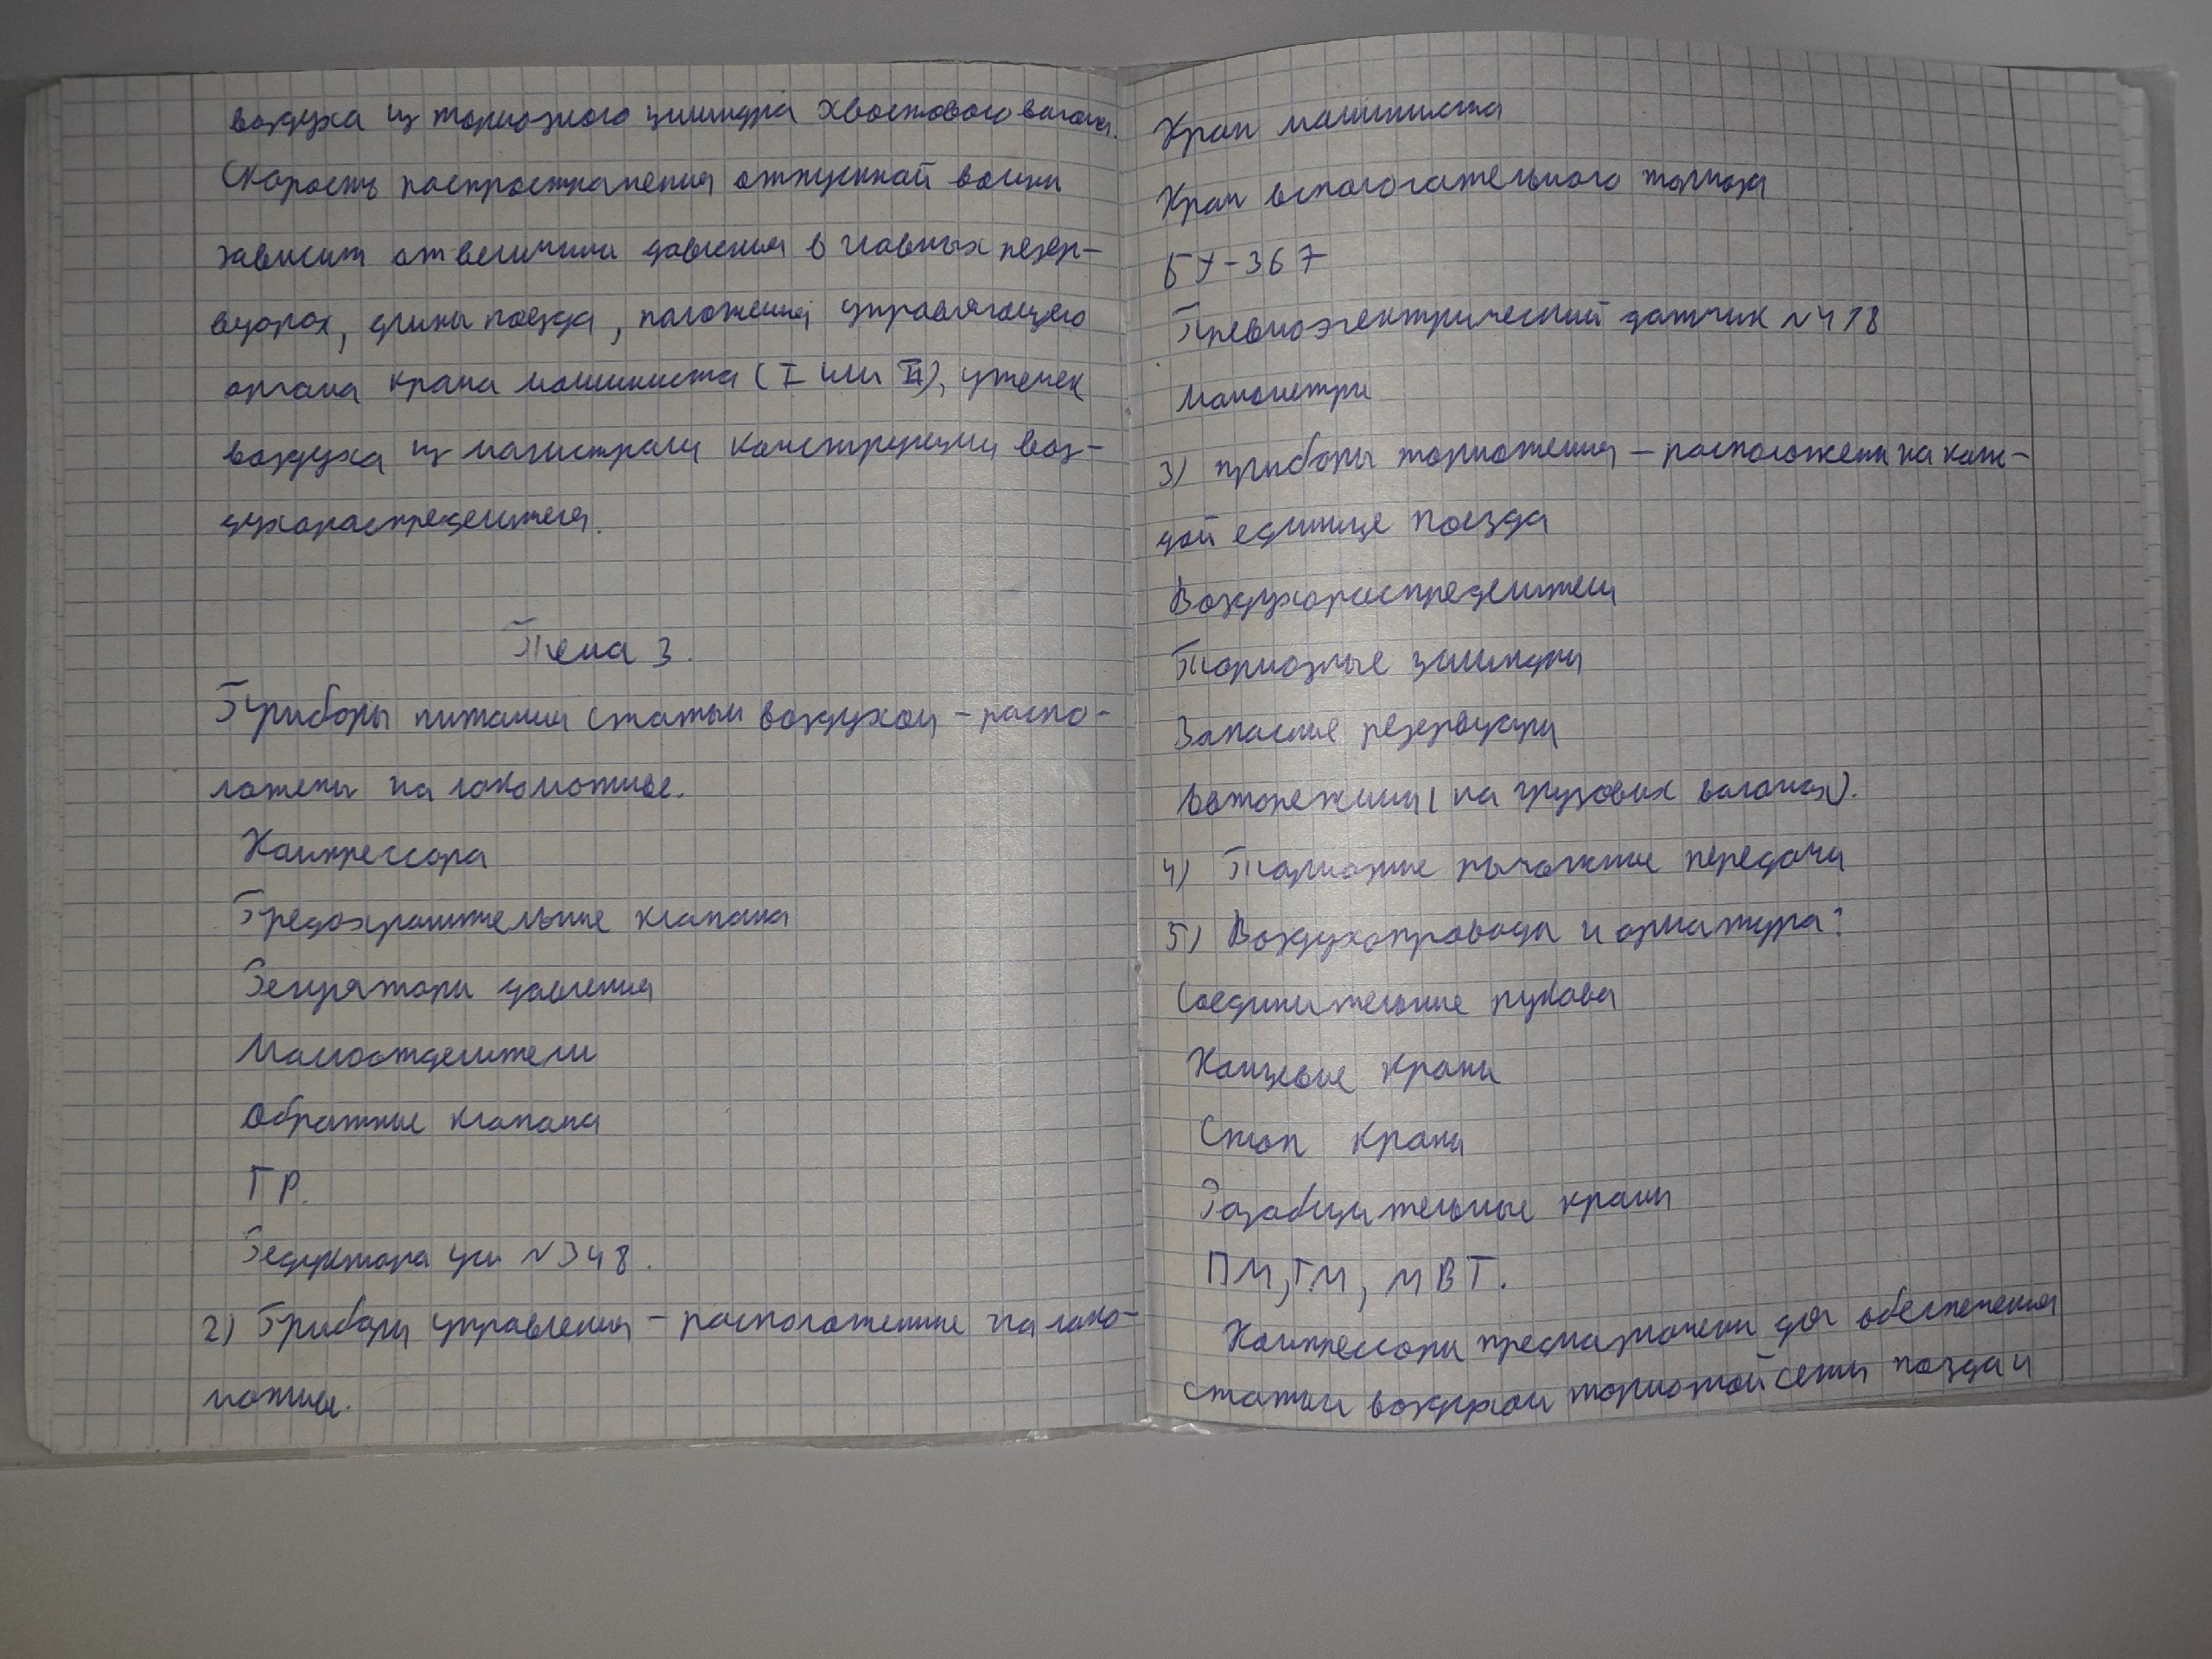 воздуха из тормозного цилиндра хвостового вагона.
Скорость распространения отпускной волны
зависит от величины давления в главных резер-
вуарах, длины поезда, положения управляющего
органа крана машиниста (I или II), утечек
воздуха из магистрали конструкции воз-
духораспределителя.
Тема 3.
Приборы питания сжатым воздухом - распо-
ложены на локомотиве.
Компрессора
Предохранительные клапана
Регуляторы давления
Маслоотделители
Обратные клапана
ГР.
Редуктора усл №348.
2) Приборы управления - расположенные на локо-
мотиве.
Кран машиниста
Кран вспомогательного тормоза
БУ-367
Пневмоэлектрический датчик №418
Манометры
3) приборы торможения - расположены на каж-
дой единице поезда
Воздухораспределители
Тормозные цилиндры
Запасные резервуары
Авторежимы (на грузовых вагонах).
4) Тормозные рычажные передачи
5) Воздухопроводы и арматура:
Соединительные рукава
Концевые краны
Стоп краны
Разобщительные краны
ПМ, ТМ, МВТ.
Компрессоры предназначены для обеспечения
сжатым воздухом тормозной сети поезда и